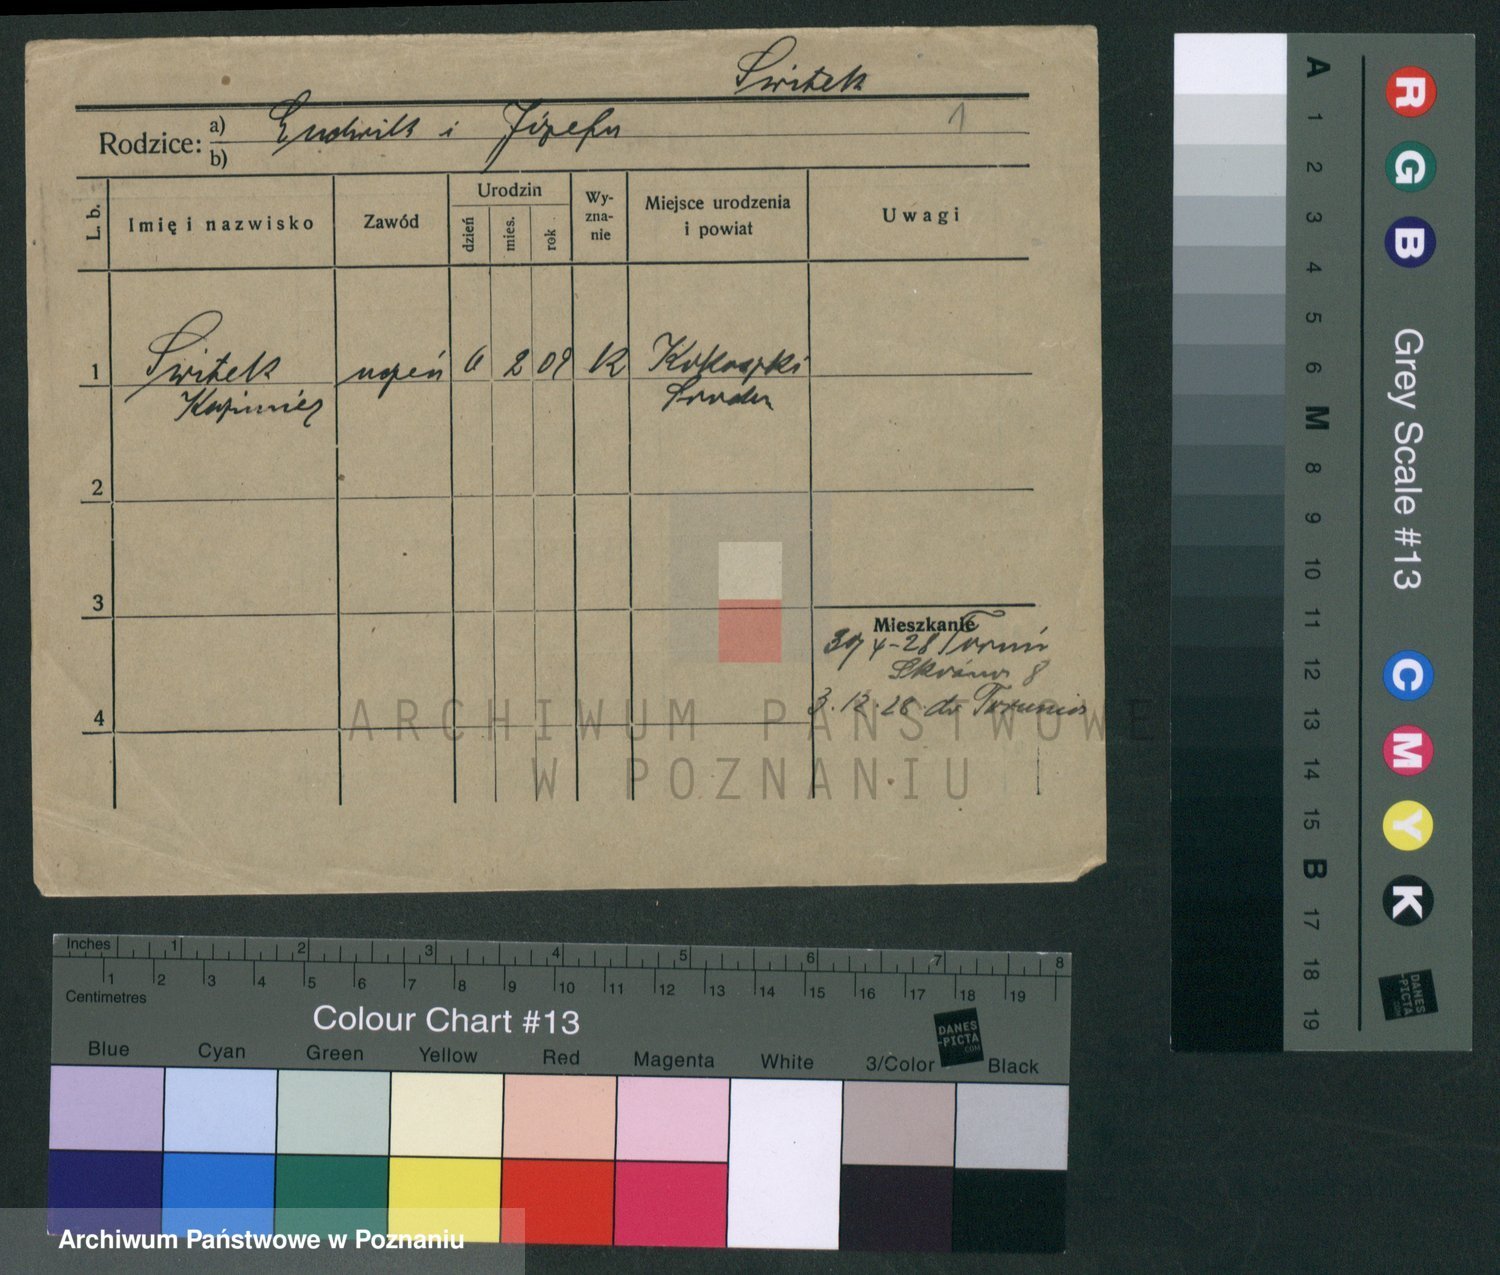 Świtek
Rodzice: a) Ludwik i Józefa
b)
1
L. b. Imię i nazwisko Zawód Urodzin dzień mies. rok Wy-zna-nie Miejsce urodzenia i powiat Uwagi
1 Świtek uczeń 6 2 09 K Kokoszki
Kazimierz Środa
2
3
Mieszkanie
4-28 Toruń
8
4 3.12.28 do Torunia
ARCHIWUM PAŃSTWOWE
W POZNANIU
Inches 1 2 3 4 5 6 7 8
1 2 3 4 5 6 7 8 9 10 11 12 13 14 15 16 17 18 19
Centimetres
Colour Chart #13
DANES
-PICTA
.COM
Blue Cyan Green Yellow Red Magenta White 3/Color Black
Archiwum Państwowe w Poznaniu
A 1 2 3 4 5 6 M 8 9 10 11 12 13 14 15 B 17 18 19
R G B
Grey Scale #13
C M Y K
DANES
-PICTA
.COM